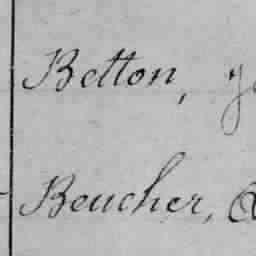 Betton,
Beucher,